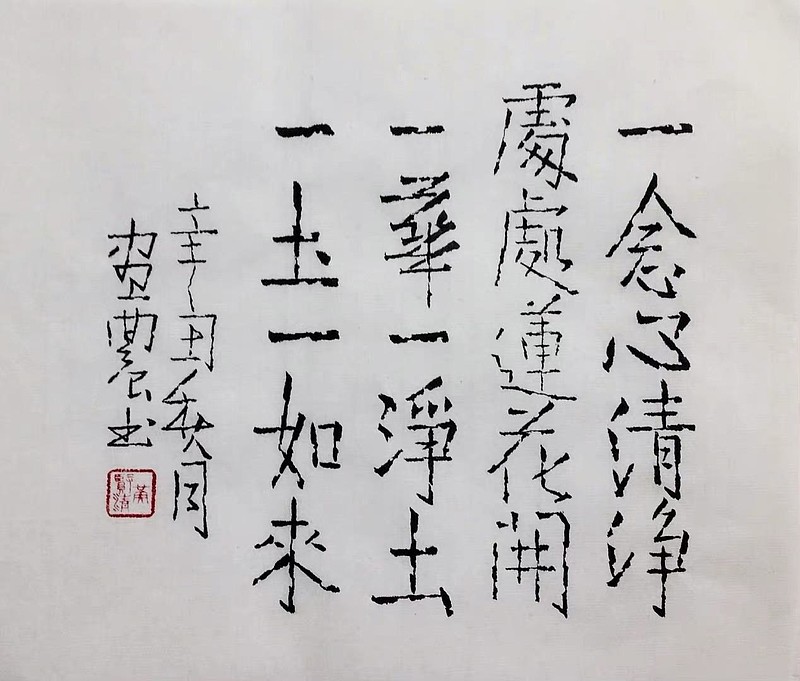 一念心清浄
處處蓮花開
一華一淨土
一土一如來
辛 秋月
農书